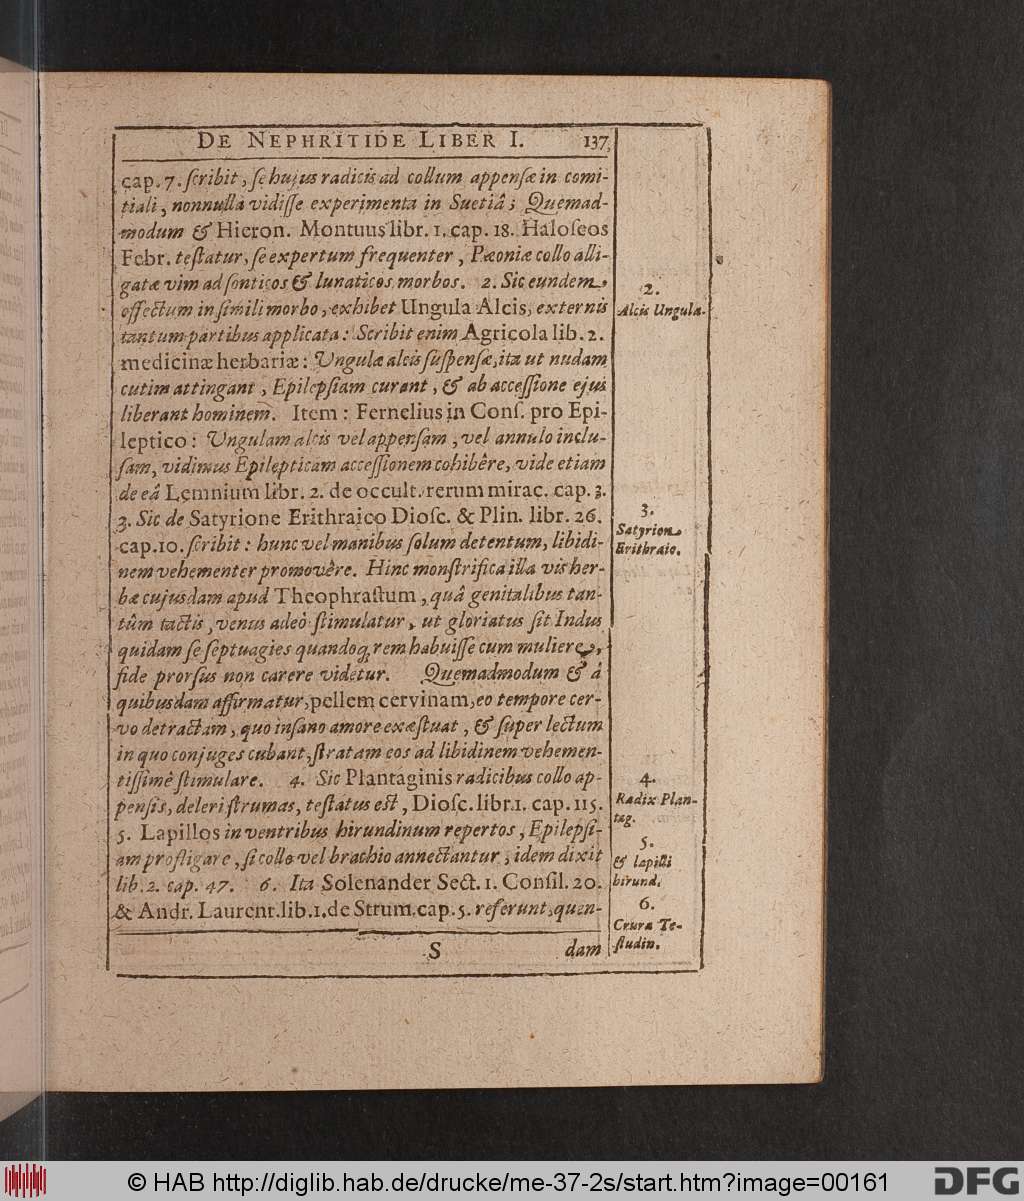 DE NEPHRITIDE LIBER I. 137
cap. 7. ſcribit, ſe hujus radicis ad collum appenſæ in comi-
tiali, nonnulla vidiſſe experimenta in Suetiâ; Quemad-
modum & Hieron. Montuus libr. 1. cap. 18. Haloſeos
Febr. teſtatur, ſe expertum frequenter, Pæoniæ collo alli-
gatæ vim ad ſonticos & lunaticos morbos. 2. Sic eundem
effectum in ſimili morbo, exhibet Ungula Alcis, externis
tantum partibus applicata: Scribit enim Agricola lib. 2.
medicinæ herbariæ: Ungulæ alcis ſuſpenſæ, ita ut nudam
cutim attingant, Epilepſiam curant, & ab acceſſione ejus
liberant hominem. Item: Fernelius in Conſ. pro Epi-
leptico: Ungulam alcis vel appenſam, vel annulo inclu-
ſam, vidimus Epilepticam acceſſionem cohibêre, vide etiam
de eâ Lemnium libr. 2. de occult. rerum mirac. cap. 3.
3. Sic de Satyrione Erithraico Dioſc. & Plin. libr. 26.
cap. 10. ſcribit: hunc vel manibus ſolum detentum, libidi-
nem vehementer promovêre. Hinc monſtrifica illa vis her-
bæ cujusdam apud Theophraſtum, quâ genitalibus tan-
tûm tactis, venus adeò ſtimulatur, ut gloriatus ſit Indus
quidam ſe ſeptuagies quandoq; rem habuiſſe cum muliere,
fide prorſus non carere videtur. Quemadmodum & â
quibusdam affirmatur, pellem cervinam, eo tempore cer-
vo detractam, quo inſano amore exæſtuat, & ſuper lectum
in quo conjuges cubant, ſtratam eos ad libidinem vehemen-
tiſſimê ſtimulare. 4. Sic Plantaginis radicibus collo ap-
penſis, deleri ſtrumas, teſtatus eſt, Dioſc. libr. 1. cap. 115.
5. Lapillos in ventribus hirundinum repertos, Epilepſi-
am profligare, ſi collo vel brachio annectantur, idem dixit
lib. 2. cap. 47. 6. Ita Solenander Sect. 1. Conſil. 20.
& Andr. Laurent. lib. 1. de Strum. cap. 5. referunt, quen-
S dam
2.
Alcis Ungula.
3.
Satyrion
Erithraic.
4.
Radix Plan-
tag.
5.
& lapilli
hirund.
6.
Crura Te-
ſtudin.
© HAB http://diglib.hab.de/drucke/me-37-2s/start.htm?image=00161
DFG